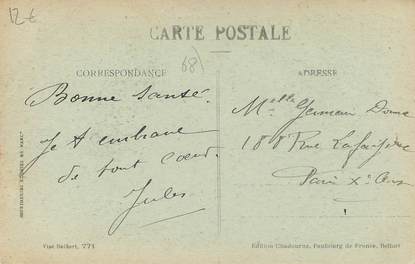 12€
CARTE POSTALE
68)
CORRESPONDANCE
ADRESSE
Bonne Santé.
Je t embrasse
de tout cœur.
Jules
Melle Germain
188 Rue Lafayette
Paris Xe
Visé Belfort, 771
Edition Chadourne, Faubourg de France, Belfort